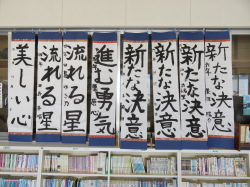 新たな決意
新たな決意
新たな決意
新たな決意
進む勇気
流れる星
流れる星
美しい心